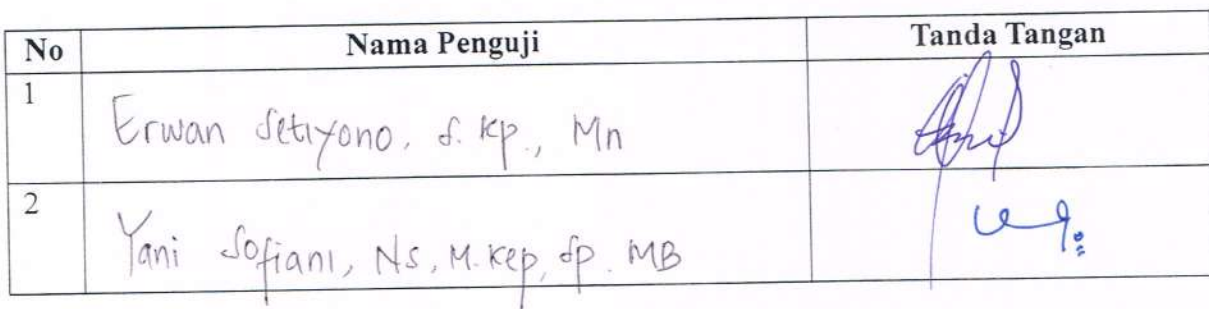 No Nama Penguji Tanda Tangan
1 Erwan Setiyono, S.Kp., Mn
2 Yani Sofiani, Ns, M.Kep, Sp. MB